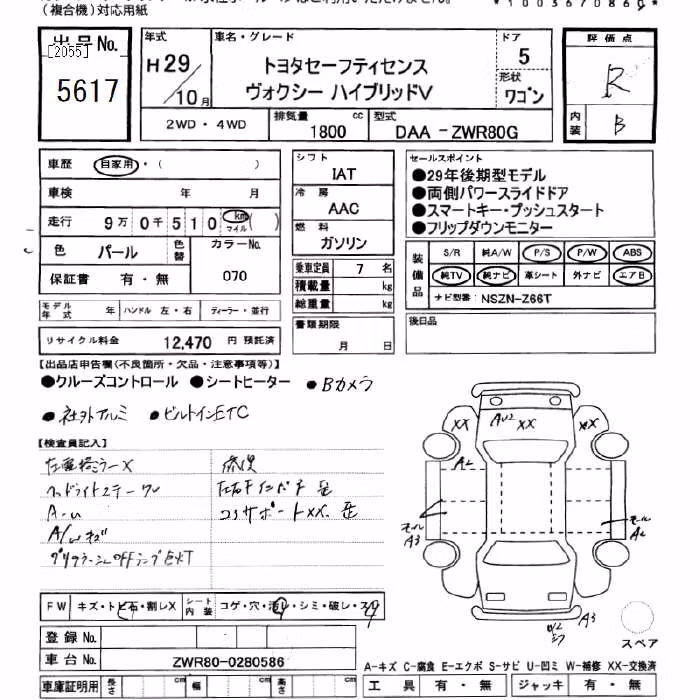 (複合機)対応用紙
*1003670860*
出品No.
[2055]
5617
年式
H29/10月
車名・グレード
トヨタセーフティセンス
ヴォクシー ハイブリッドV
ドア
5
形状
ワゴン
評価点
R
内装
B
2WD・4WD
排気量
1800 cc
型式
DAA-ZWR80G
車歴 自家用・( )
車検 年 月
走行 9万0千510 km マイル ( )
色 パール 色替 カラーNo. 070
保証書 有・無
モデル年式 年 ハンドル 左・右 ディーラー・並行
リサイクル料金 12,470 円 預託済
シフト
IAT
冷房
AAC
燃料
ガソリン
乗車定員 7 名
積載量 kg
総重量 kg
書類期限
月 日
セールスポイント
●29年後期型モデル
●両側パワースライドドア
●スマートキー・プッシュスタート
●フリップダウンモニター
装備品
S/R 純A/W P/S P/W ABS
純TV 純ナビ 革シート 外ナビ エアB
ナビ型番: NSZN-Z66T
後日品
【出品店申告欄(不良箇所・欠品・注意事項等)】
●クルーズコントロール ●シートヒーター ●Bカメラ
●社外アルミ ●ビルトインETC
【検査員記入】
ヘッドライトスチール
コアサポートXX
XX
AU2
XX
XX
A2
モール
A3
モール
A2
A3
スペア
FW キズ・トビ石・割レX シート内装 コゲ・穴・汚レ・シミ・破レ・スレ
登録No.
車台No. ZWR80-0280586
車庫証明用 長さ cm 幅 cm 高さ cm
A-キズ C-腐食 E-エクボ S-サビ U-凹ミ W-補修 XX-交換済
工具 有・無 ジャッキ 有・無